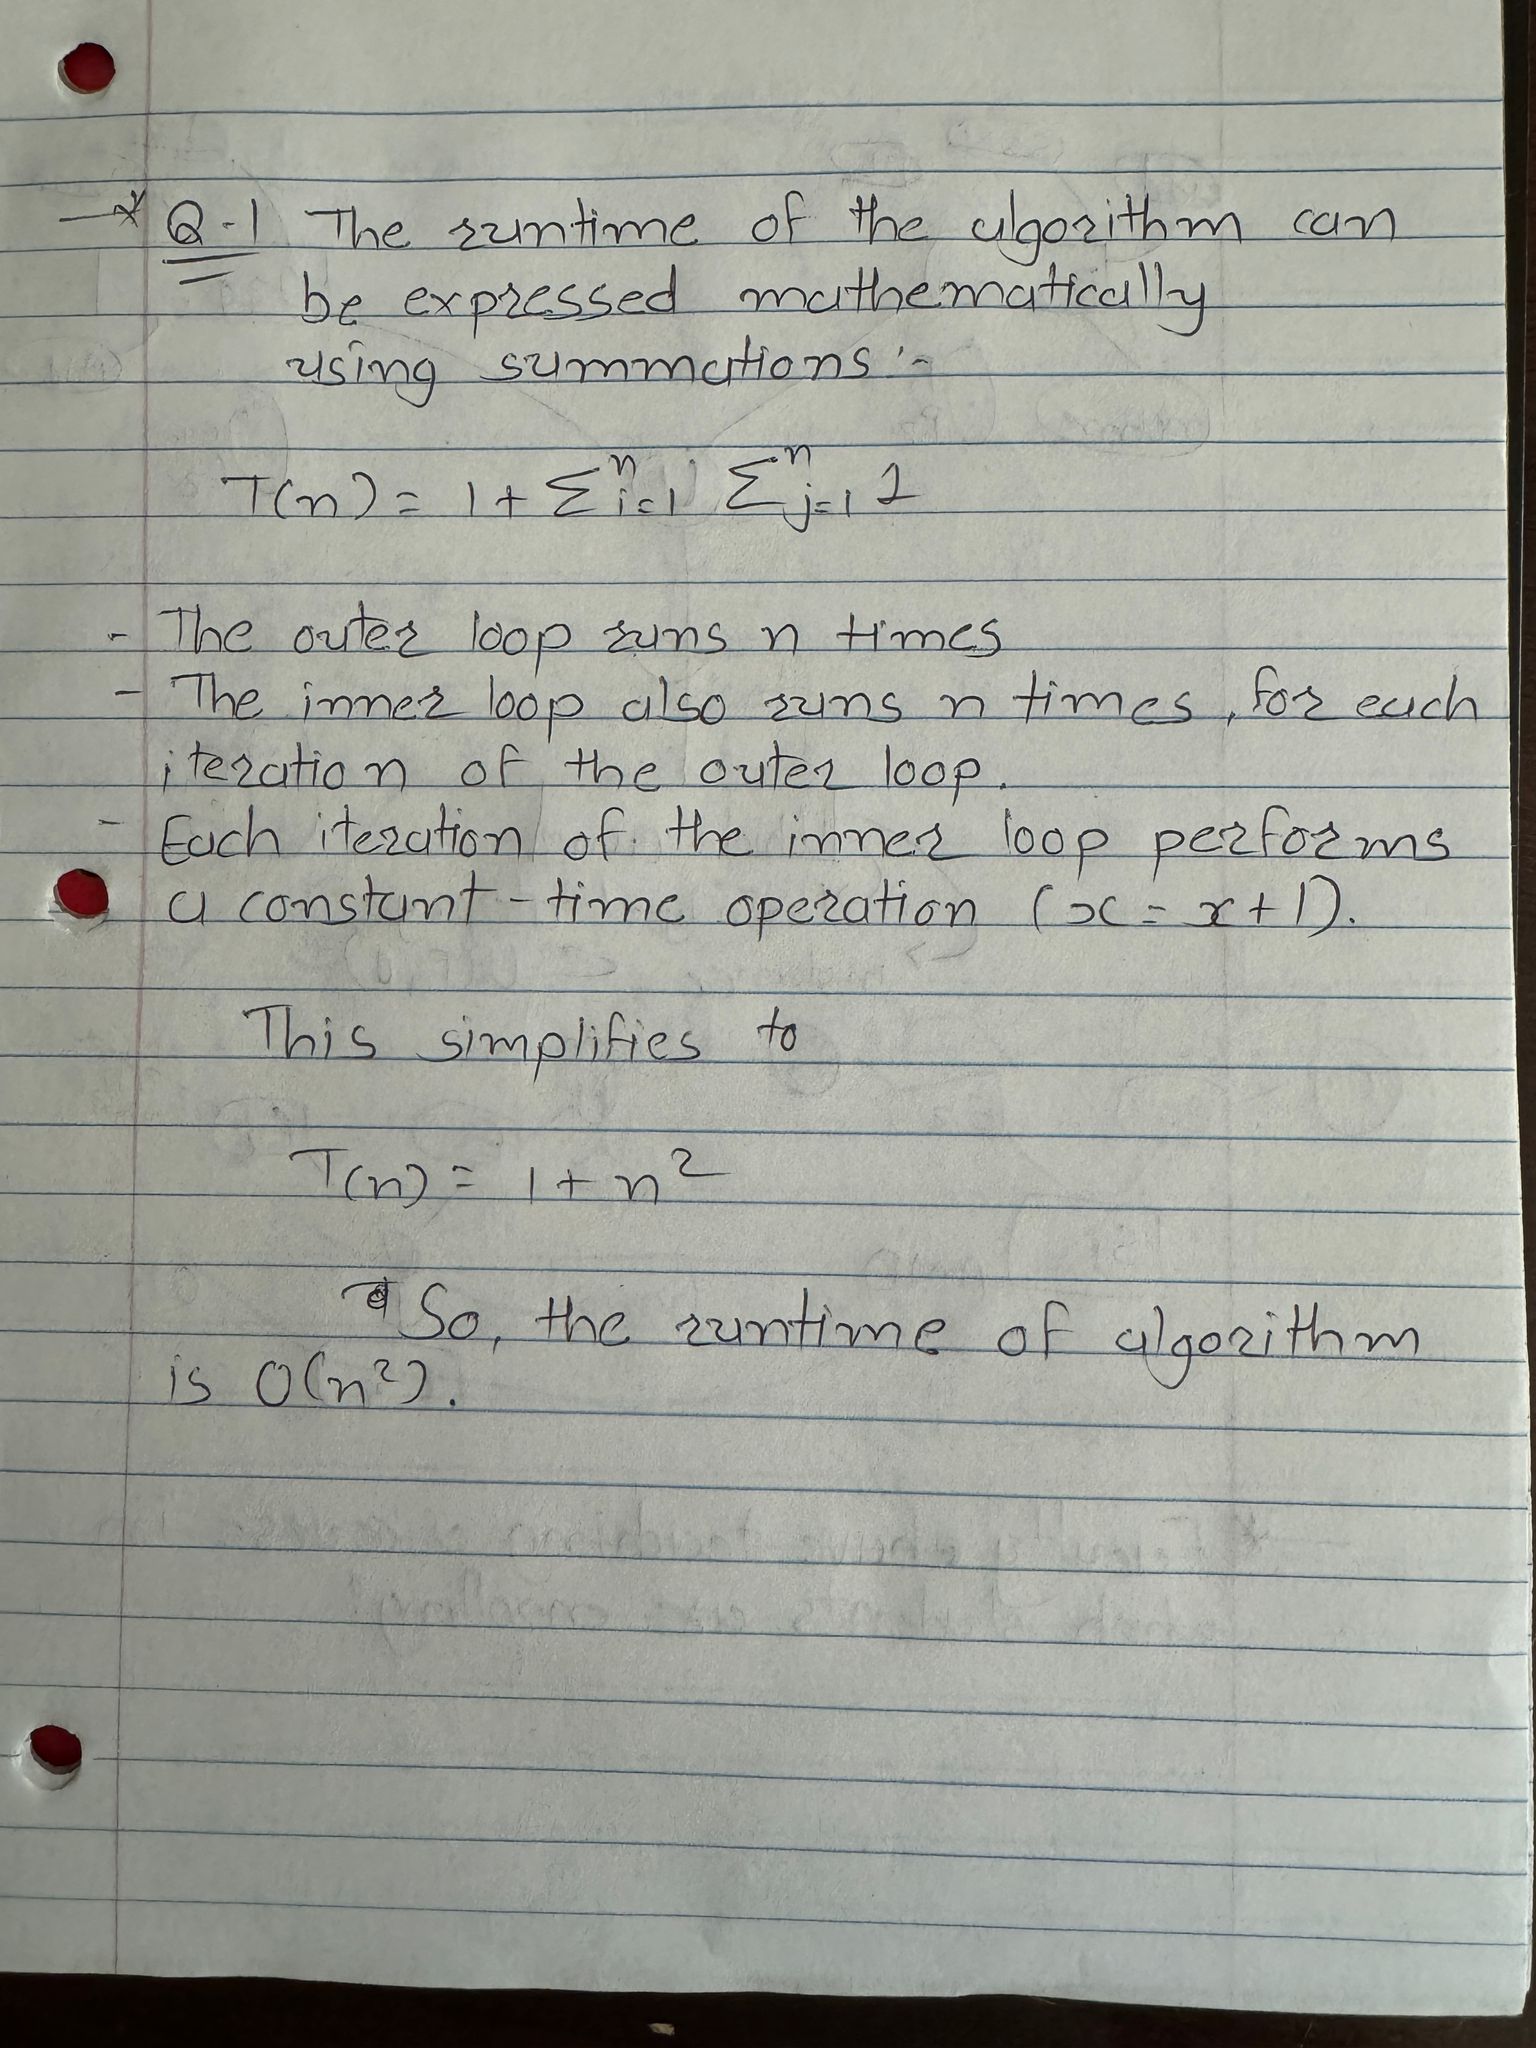 Q-1 The runtime of the algorithm can
be expressed mathematically
using summations :-
T(n) = 1 + Σⁿi=1 Σⁿj=1 1
- The outer loop runs n times
- The inner loop also runs n times, for each
iteration of the outer loop.
- Each iteration of the inner loop performs
a constant-time operation (x = x+1).
This simplifies to
T(n) = 1 + n²
So, the runtime of algorithm
is O(n²).